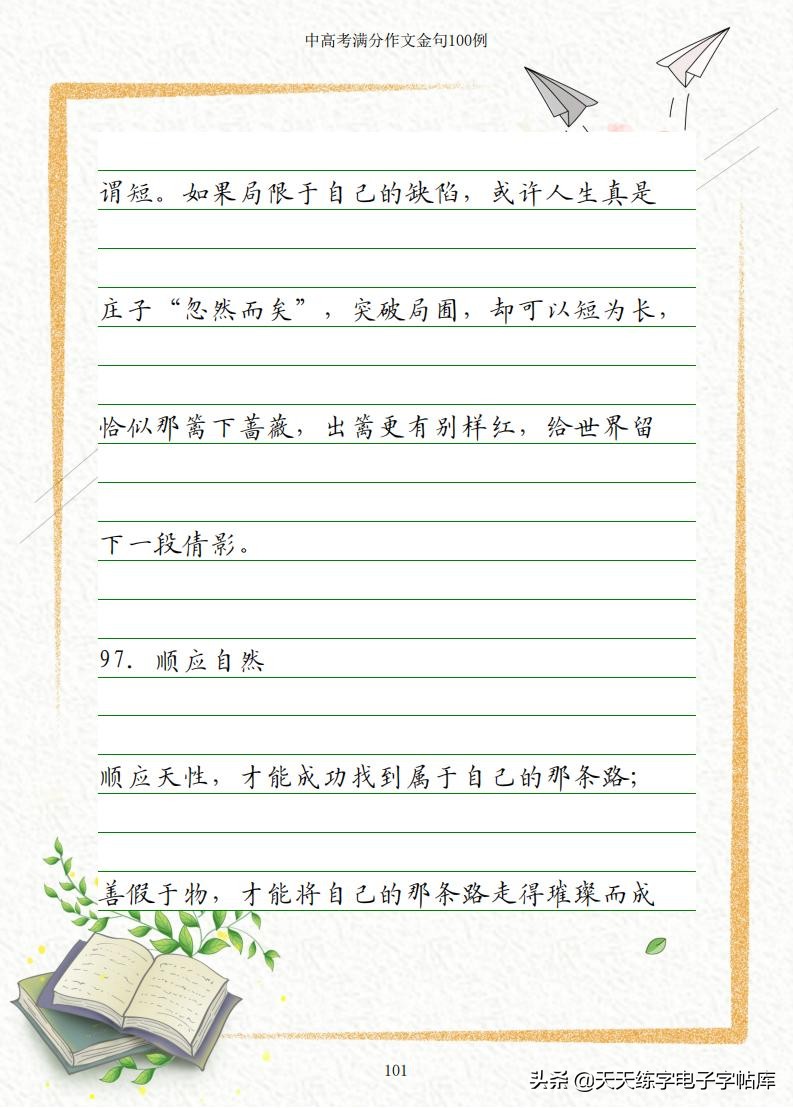 中高考满分作文金句100例
谓短。如果局限于自己的缺陷，或许人生真是
庄子“忽然而矣”，突破局囿，却可以短为长，
恰似那篱下蔷薇，出篱更有别样红，给世界留
下一段倩影。
97. 顺应自然
顺应天性，才能成功找到属于自己的那条路；
善假于物，才能将自己的那条路走得璀璨而成
101
头条 @天天练字电子字帖库